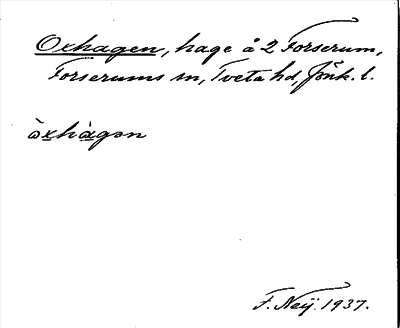 Oxhagen, hage å 2 Forserum,
Forserums sn, Tveta hd, Jönk. l.
òxhàgən
F. Neij. 1937.